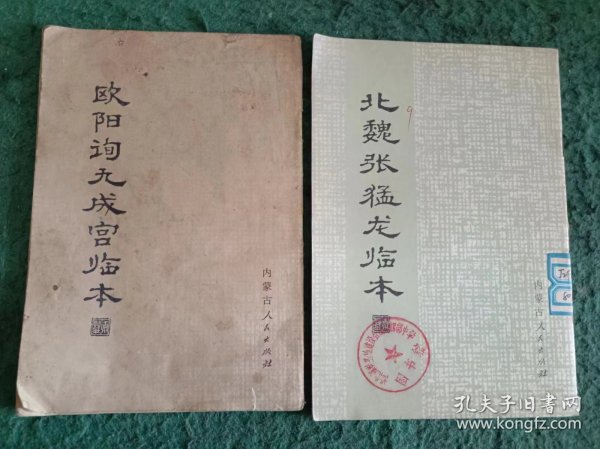 欧阳询九成宫临本
内蒙古人民出版社
北魏张猛龙临本
9
内蒙古人民出版社
图书
孔夫子旧书网
www.kongfz.com